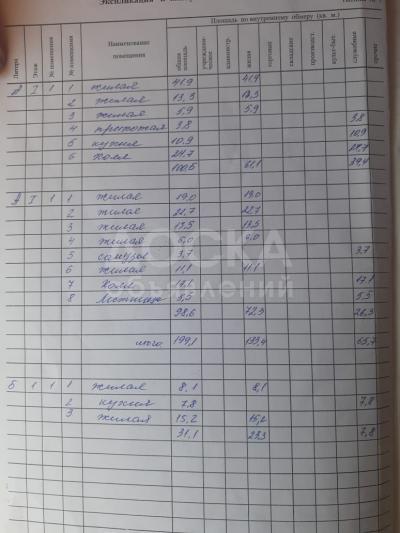 Экспликация
Площадь по внутреннему обмеру (кв. м.)
Литера Этаж № помещения № помещения Наименование помещения общая площадь учрежденческое администр. жилая торговый складские производст. культ-быт. служебные прочие
А I 1 1 жилая 41,9 41,9
2 жилая 13,3 13,3
3 жилая 5,9 5,9
4 прихожая 3,8 3,8
5 кухня 10,9 10,9
6 холл 24,7 24,7
100,5 61,1 39,4
А I 1 1 жилая 19,0 19,0
2 жилая 22,7 22,7
3 жилая 13,5 13,5
4 жилая 6,0 6,0
5 санузел 3,7 3,7
6 жилая 11,1 11,1
7 холл 17,1 17,1
8 Лестница 5,5 5,5
98,6 72,3 26,3
итого 199,1 133,4 65,7
Б 1 1 1 жилая 8,1 8,1
2 кухня 7,8 7,8
3 жилая 15,2 15,2
31,1 23,3 7,8
ДОСКА
ОБЪЯВЛЕНИЙ